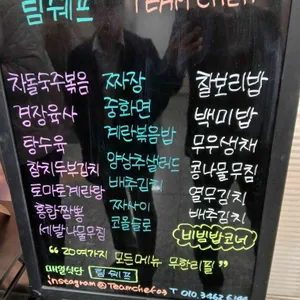 팀쉐프 TEAM CHEF
차돌숙주볶음 짜장 찰보리밥
경장육사 중화면 백미밥
탕수육 계란볶음밥 무우생채
참치두부김치 양상추샐러드 콩나물무침
토마토계란탕 배추김치 열무김치
홍합짬뽕 짜사이 배추김치
세발나물무침 코울슬로 비빔밥코너
"20여가지 모든메뉴 무한리필"
매일식단 팀쉐프
instagram@Teamchef03 T 010.3462.6144